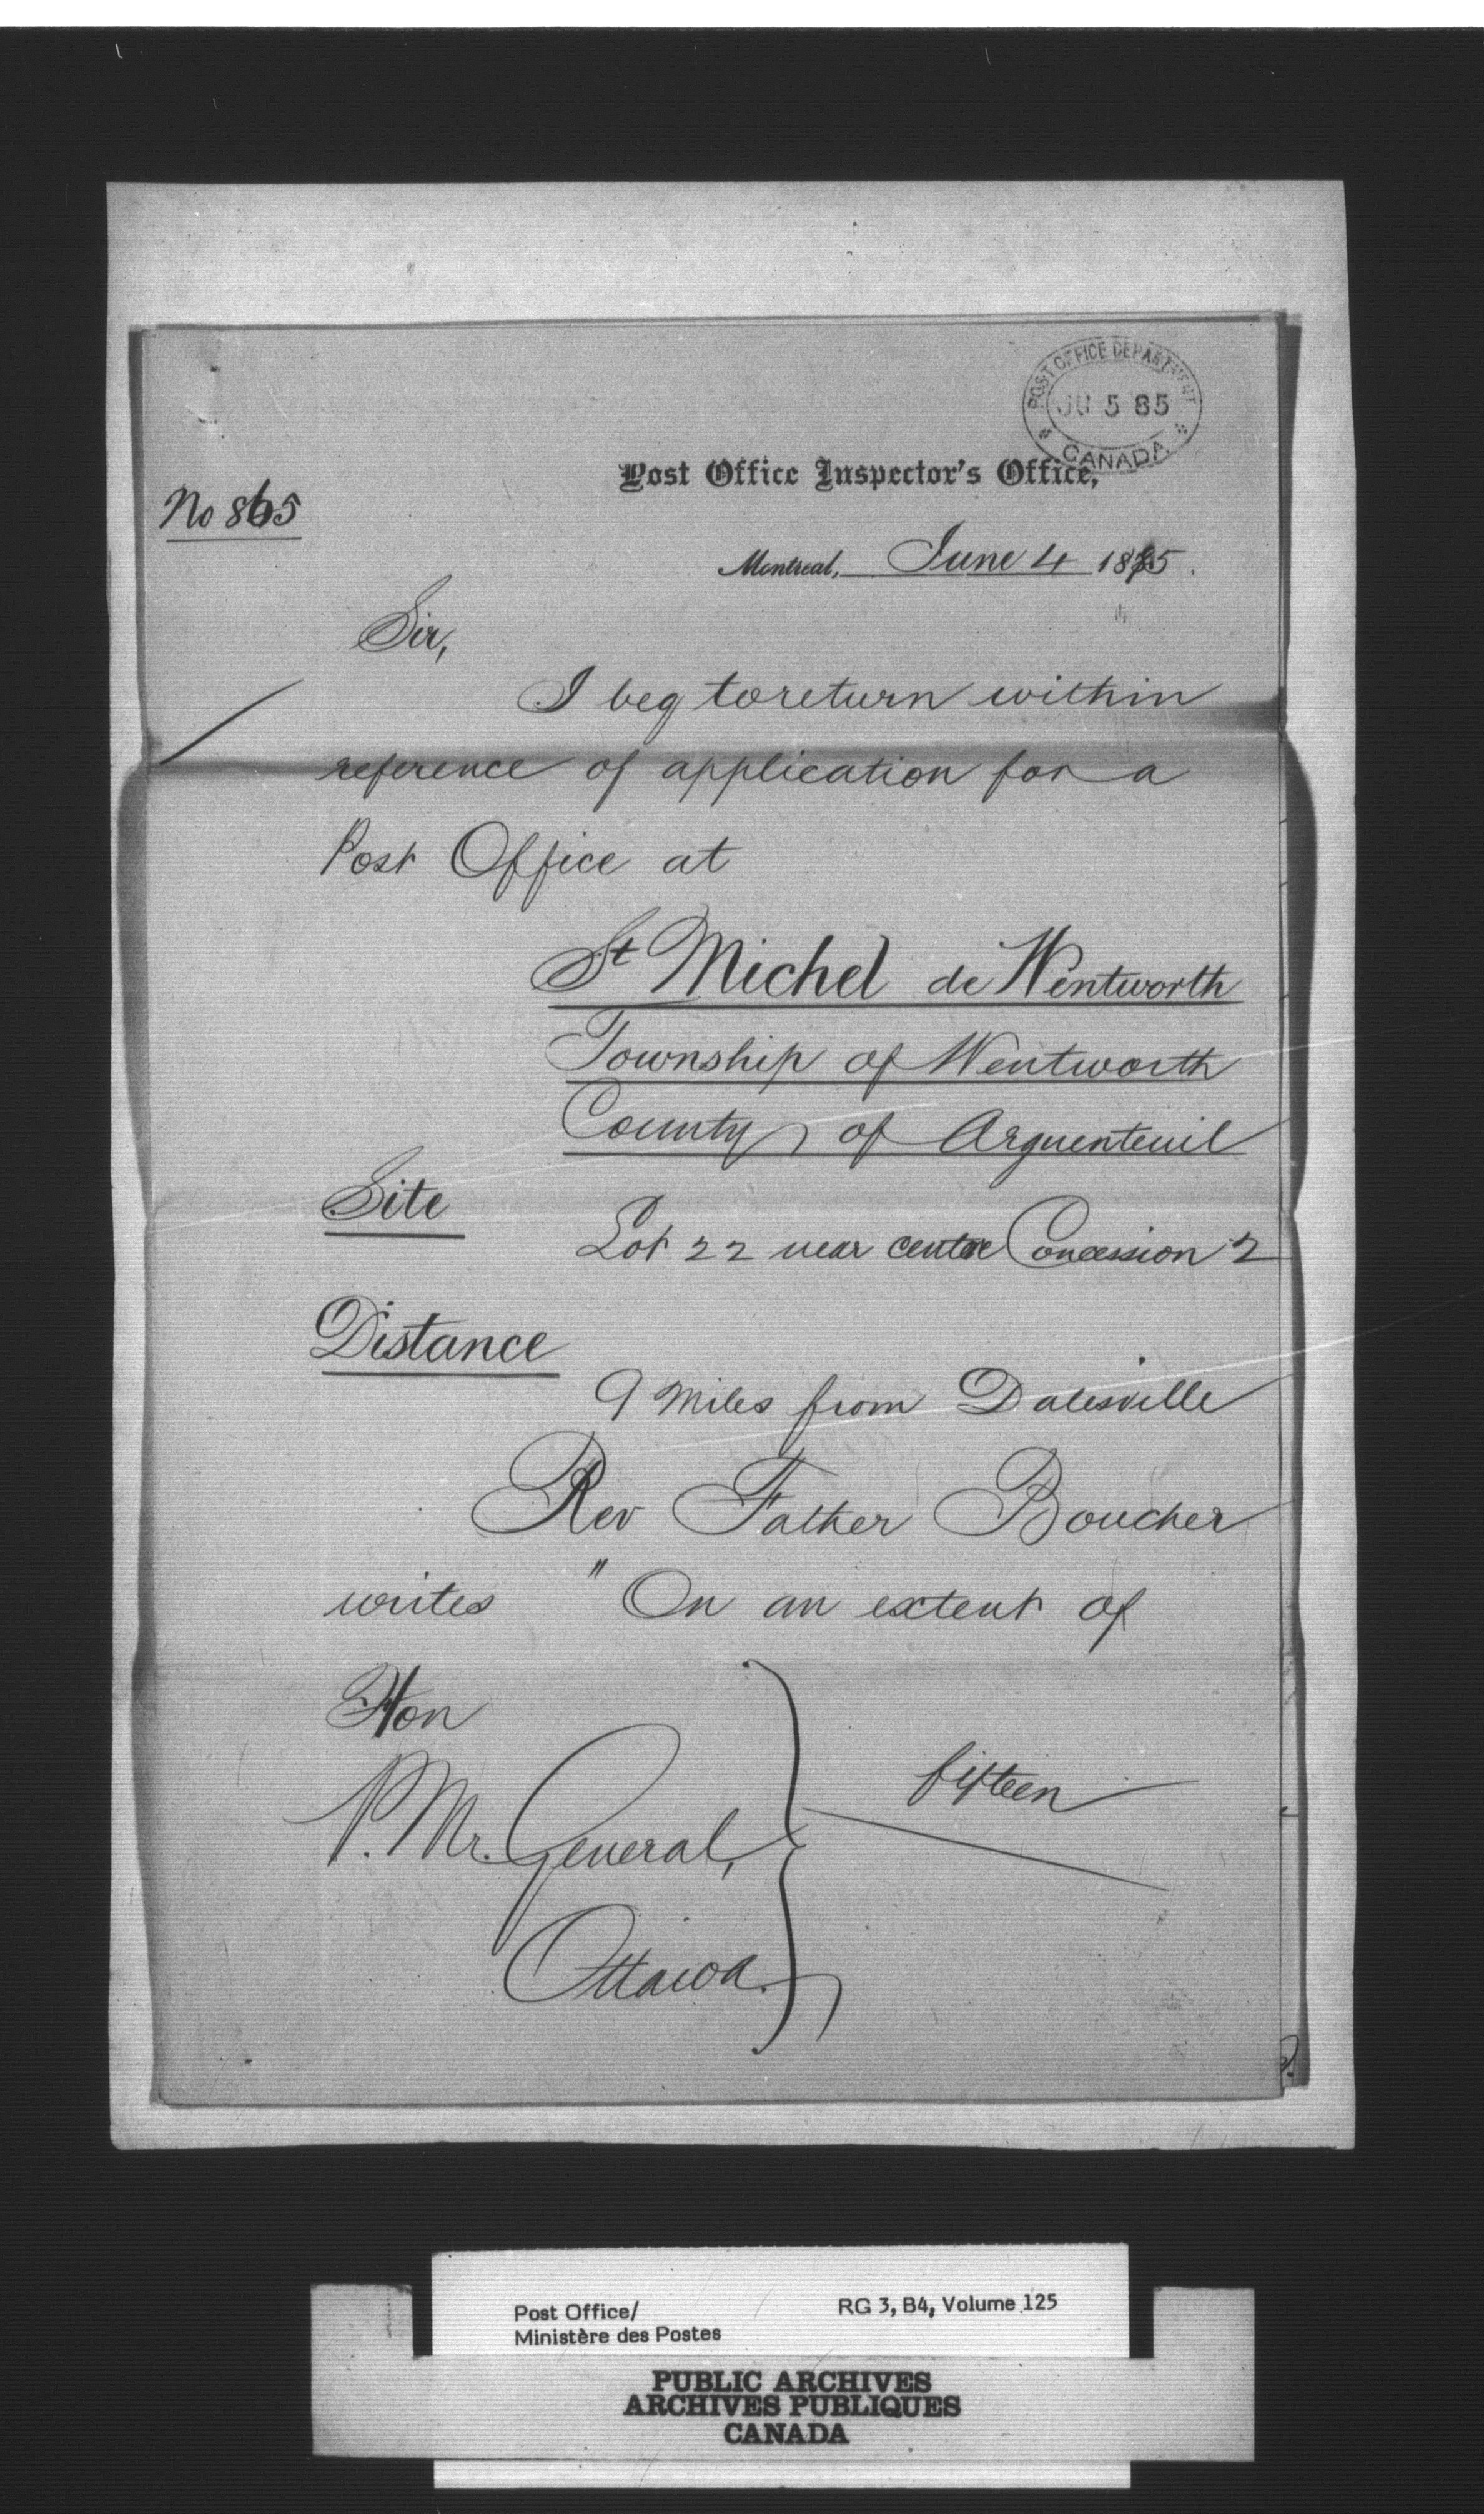 POST OFFICE DEPARTMENT
JU 5 85
CANADA
Post Office Inspector's Office,
No 865
Montreal, June 4 1885.
Sir,
I beg to return within
reference of application for a
Post Office at
St Michel de Wentworth
Township of Wentworth
County of Arguenteuil
Site
Lot 22 near centre Concession 2
Distance
9 miles from Dalesville
Rev Father Boucher
writes " On an extent of
Hon
P. Mr. General,
Ottawa.
fifteen
Post Office/
Ministère des Postes
RG 3, B4, Volume 125
PUBLIC ARCHIVES
ARCHIVES PUBLIQUES
CANADA